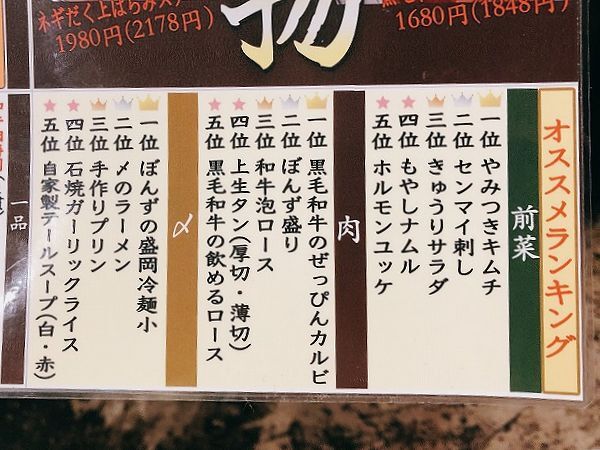 ネギだく上はらみステ
1980円(2178円)
物
1680円(1848円)
オススメランキング
前菜
一位 やみつきキムチ
二位 センマイ刺し
三位 きゅうりサラダ
四位 もやしナムル
五位 ホルモンユッケ
肉
一位 黒毛和牛のぜっぴんカルビ
二位 ぼんず盛り
三位 和牛泡ロース
四位 上生タン(厚切・薄切)
五位 黒毛和牛の飲めるロース
〆
一位 ぼんずの盛岡冷麺小
二位 〆のラーメン
三位 手作りプリン
四位 石焼ガーリックライス
五位 自家製テールスープ(白・赤)
一品